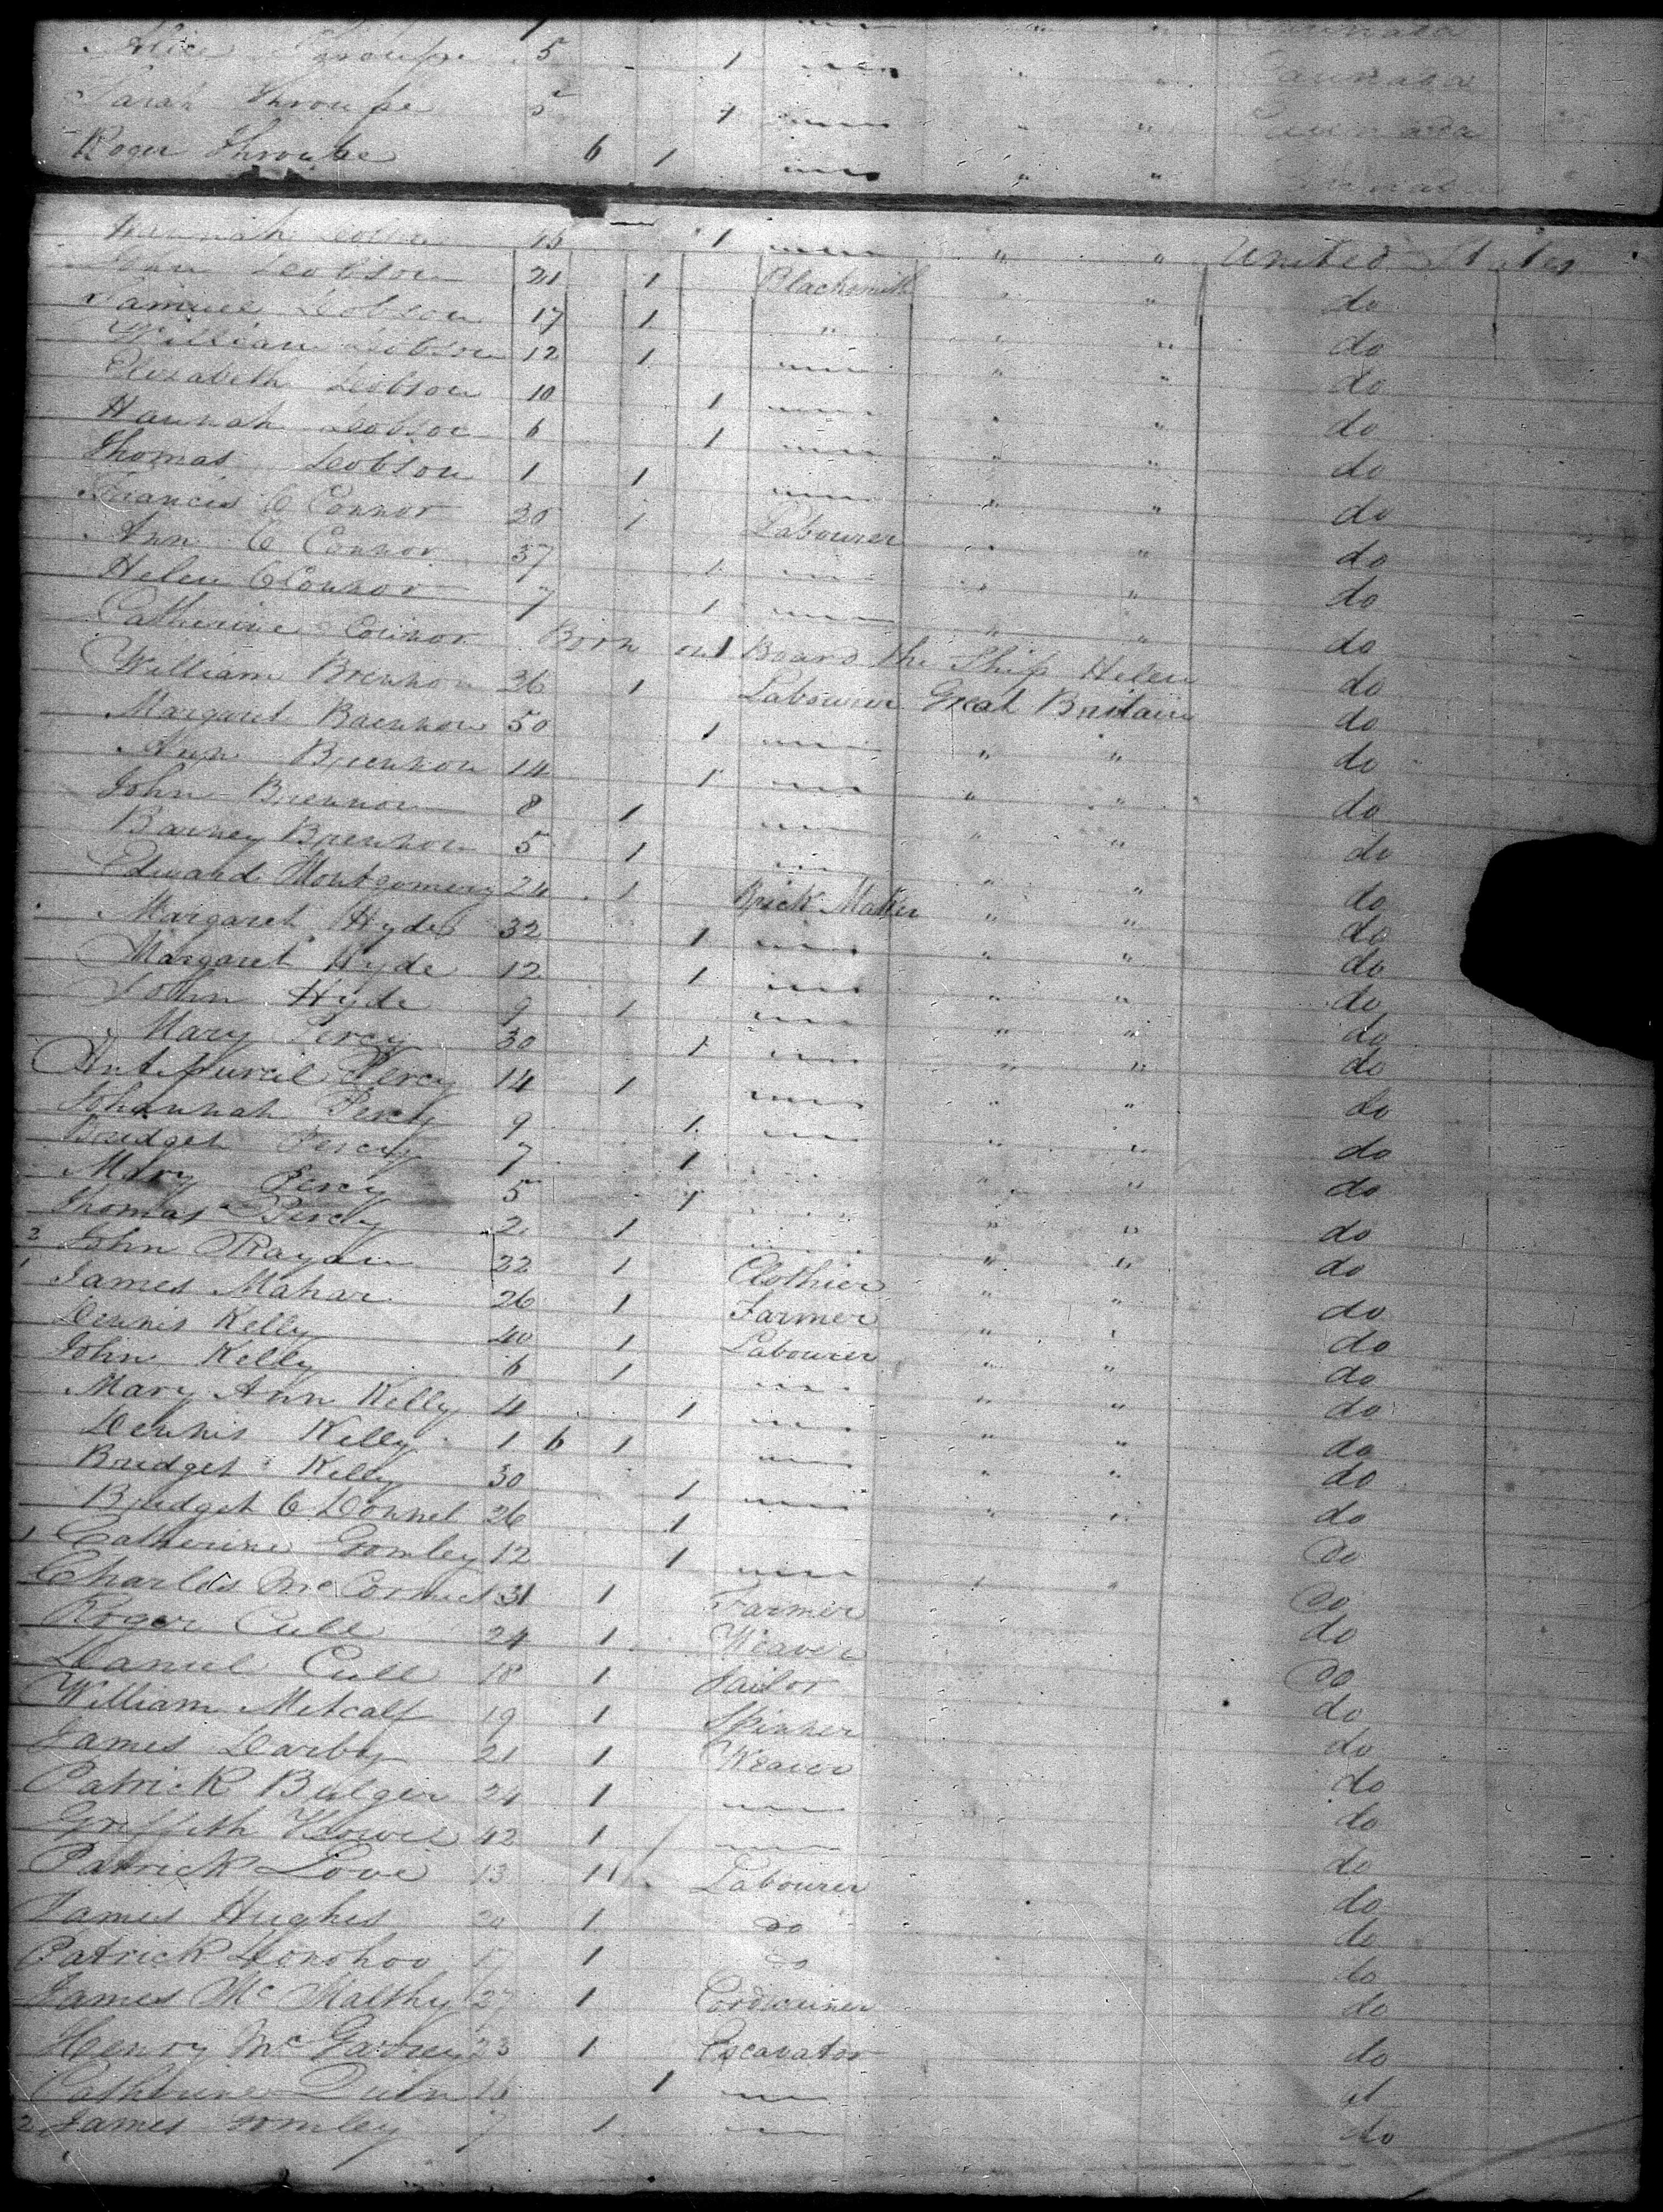 Alice Throupe 5 1 " " Cannada
Sarah Throupe 1 " " Cannada
Roger Throupe 6 1 " "
Hannah Dobson 45 1 " " United States
John Dobson 21 1 Blacksmith " " do
Samuel Dobson 17 1 " " " do
William Dobson 12 1 " " do
Elizabeth Dobson 10 1 " " do
Hannah Dobson 6 1 " " do
Thomas Dobson 1 1 " " do
Francis O Connor 30 1 Labourer " " do
Ann O Connor 37 1 " " do
Helen O Connor 7 1 " " do
Catherine Connor Born on Board the Ship Helen do
William Brennon 36 1 Labourer Great Britain do
Margaret Brennon 50 1 " " do
Ann Brennon 14 1 " " do
John Brennon 8 1 " " do
Barney Brennon 5 1 " " do
Edward Montgomery 24 1 Brick Maker " " do
Margaret Hyde 32 1 " " do
Margaret Hyde 12 1 " " do
John Hyde 9 1 " " do
Mary Percy 30 1 " " do
Percy 14 1 " " do
Johannah Percy 9 1 " " do
Bridget Percy 7 1 " " do
Mary Percy 5 1 " " do
Thomas Percy 2 1 " " do
2 John Rayan 22 1 Clothier " " do
1 James Mahar 26 1 Farmer " " do
Dennis Kelly 40 1 Labourer " " do
John Kelly 6 1 " " do
Mary Ann Kelly 4 1 " " do
Dennis Kelly 1 6 1 " " do
Bridget Kelly 30 1 " " do
Bridget O Donnel 26 1 do
1 Catherine Gomley 12 1 " " do
Charles McCormick 31 1 Farmer do
Roger Cull 24 1 Weaver do
Daniel Cull 18 1 Sailor do
William Metcalf 19 1 Spinner do
James Darby 21 1 Weaver do
Patrick Bulger 24 1 do
Griffith 42 1 do
Patrick Love 13 11 Labourer do
James Hughes 20 1 do do
Patrick Donohoo 1 do do
James Mc Malthy 27 1 Cordwainer do
Henry Mc Garvey 23 1 Excavator do
Catherine Quin 1 do
2 James Gomley 7 1 do